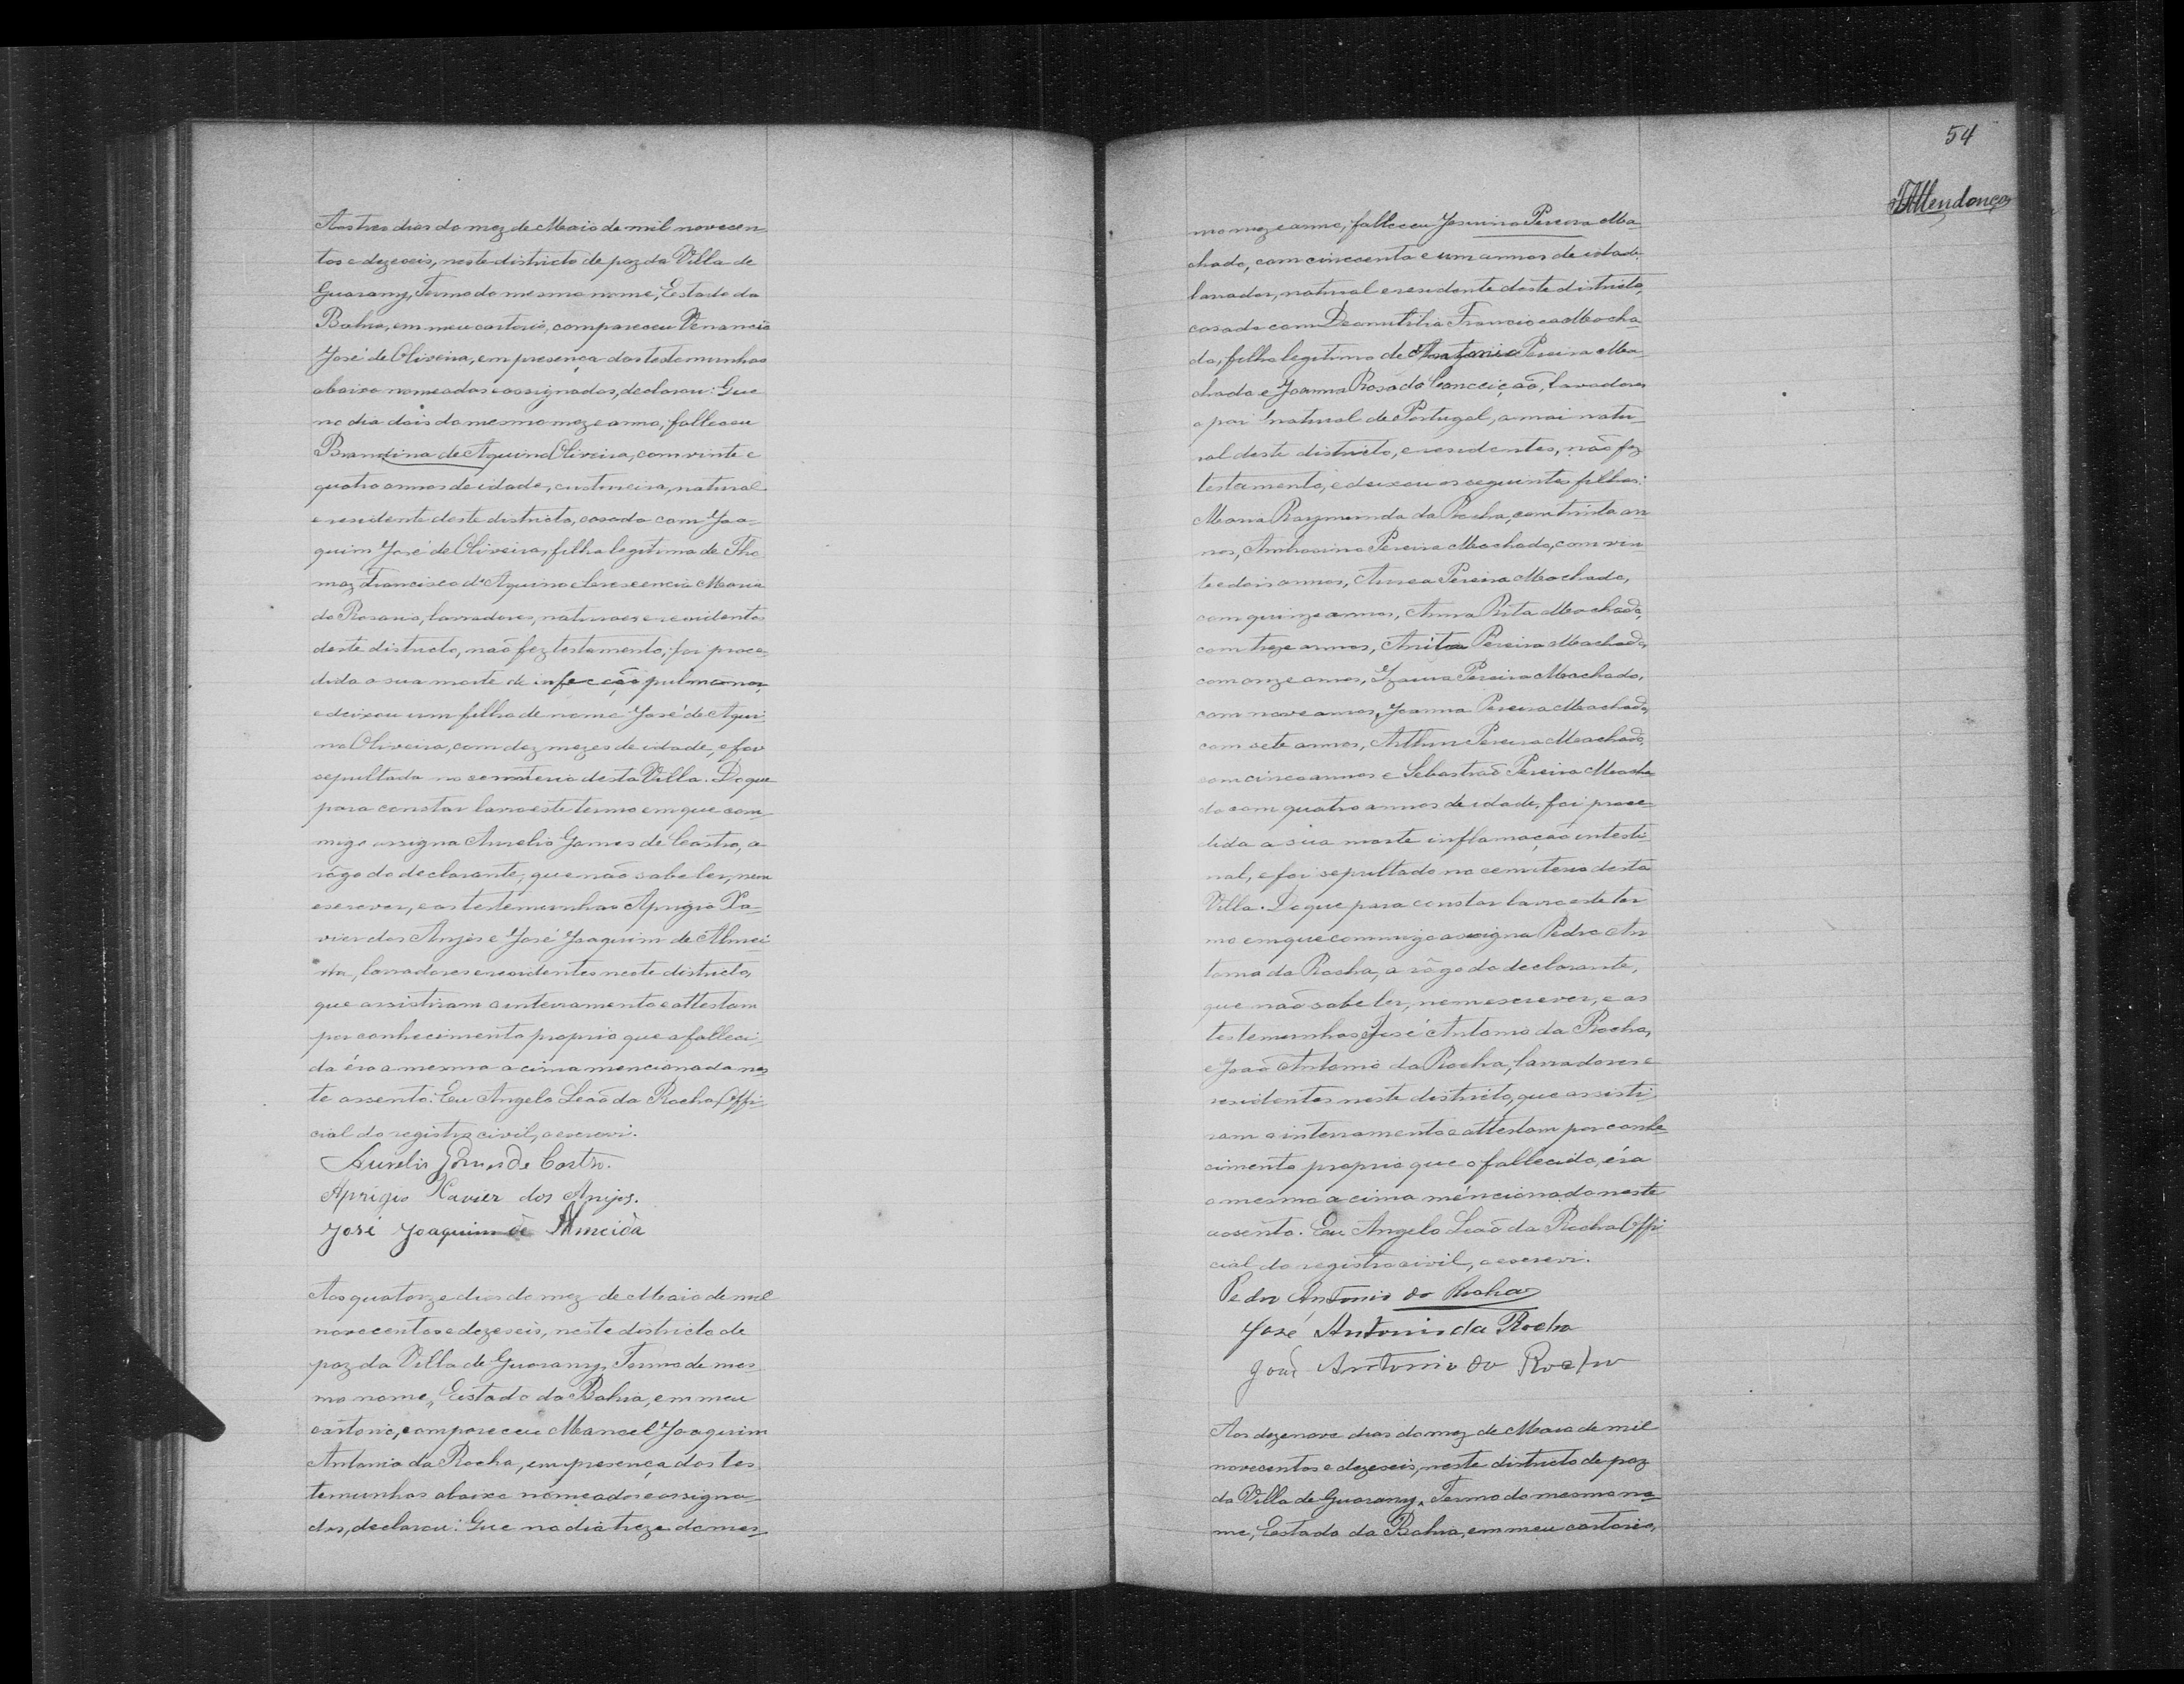 Aos tres dias do mez de Maio de mil novecen-
tos e dezeseis, neste districto de paz da Villa de
Guarany, Termo do mesmo nome, Estado da
Bahia, em meu cartorio, compareceu Venancio
José de Oliveira, em presença das testemunhas
abaixo nomeadas e assignadas, declarou: Que
no dia dois do mesmo mez e anno, falleceu
Brandina de Aquino Oliveira, com vinte e
quatro annos de idade, custureira, natural
e residente deste districto, casada com Joa-
quim José de Oliveira, filha legitima de Tho
maz Francisco d'Aquino e Crescencia Maria
do Rosario, lavradores, naturaes e residentes
deste districto, não fez testamento, foi proce-
dida a sua morte de infecção pulmonar,
e deixou um filho de nome José de Aqui
no Oliveira, com dez mezes de idade, e foi
sepultada no cemiterio desta Villa. Do que
para constar lavro este termo em que com-
migo assigna Aurelio Gomes de Castro, a
rôgo do declarante, que não sabe ler, nem
escrever, e as testemunhas Aprigio Xa-
vier dos Anjos e José Joaquim de Almei
da, lavradores e residentes neste districto,
que assistiram o enterramento e attestam
por conhecimento proprio que a falleci-
da éra a mesma acima mencionada nes
te assento. Eu Angelo Leão da Rocha Offi-
cial do registro civil, o escrevi.
Aurelio Gomes de Castro.
Aprigio Xavier dos Anjos.
José Joaquim de Almeida
Aos quatorze dias do mez de Maio de mil
novecentos e dezeseis, neste districto de
paz da Villa de Guarany, Termo de mes
mo nome, Estado da Bahia, em meu
cartorio, compareceu Manoel Joaquim
Antonio da Rocha, em presença das tes
temunhas abaixo nomeadas e assigna-
das, declarou: Que no dia treze do mes-
54
mo mez e anno, falleceu Jesuino Pereira Ma-
chado, com cincoenta e um annos de idade
lavrador, natural e residente deste districto,
casado com Francisca Macha
do, filho legitimo de Antonio Pereira Ma-
chado e Joanna Rosa da Conceição, lavradores
o pai natural de Portugal, a mai natu-
ral deste districto, e residentes, não fez
testamento, e deixou os seguintes filhos:
Maria Raymunda da Rocha, com trinta an
nos, Ambrosina Pereira Machado, com vin
te e dois annos, Aurea Pereira Machado,
com quinze annos, Anna Rita Machado,
com treze annos, Anita Pereira Machado,
com onze annos, Izaura Pereira Machado,
com nove annos, Joanna Pereira Machado,
com sete annos, Arthur Pereira Machado,
com cinco annos e Sebastião Pereira Macha
do com quatro annos de idade, foi proce-
dida a sua morte inflamação intesti-
nal, e foi sepultado no cemiterio desta
Villa. Do que para constar lavro este ter
mo em que commigo assigna Pedro An
tonio da Rocha, a rôgo do declarante,
que não sabe ler, nem escrever, e as
testemunhas José Antonio da Rocha,
e João Antonio da Rocha, lavradores e
residentes neste districto, que assisti
ram o enterramento e attestam por conhe
cimento proprio que o fallecido, éra
o mesmo acima mencionado neste
assento. Eu Angelo Leão da Rocha Offi
cial do registro civil, o escrevi.
Pedro Antonio da Rocha
José Antonio da Rocha
João Antonio da Rocha
Aos dezenove dias do mez de Maio de mil
novecentos e dezeseis, neste districto de paz
da Villa de Guarany, Termo do mesmo no
me, Estado da Bahia, em meu cartorio,